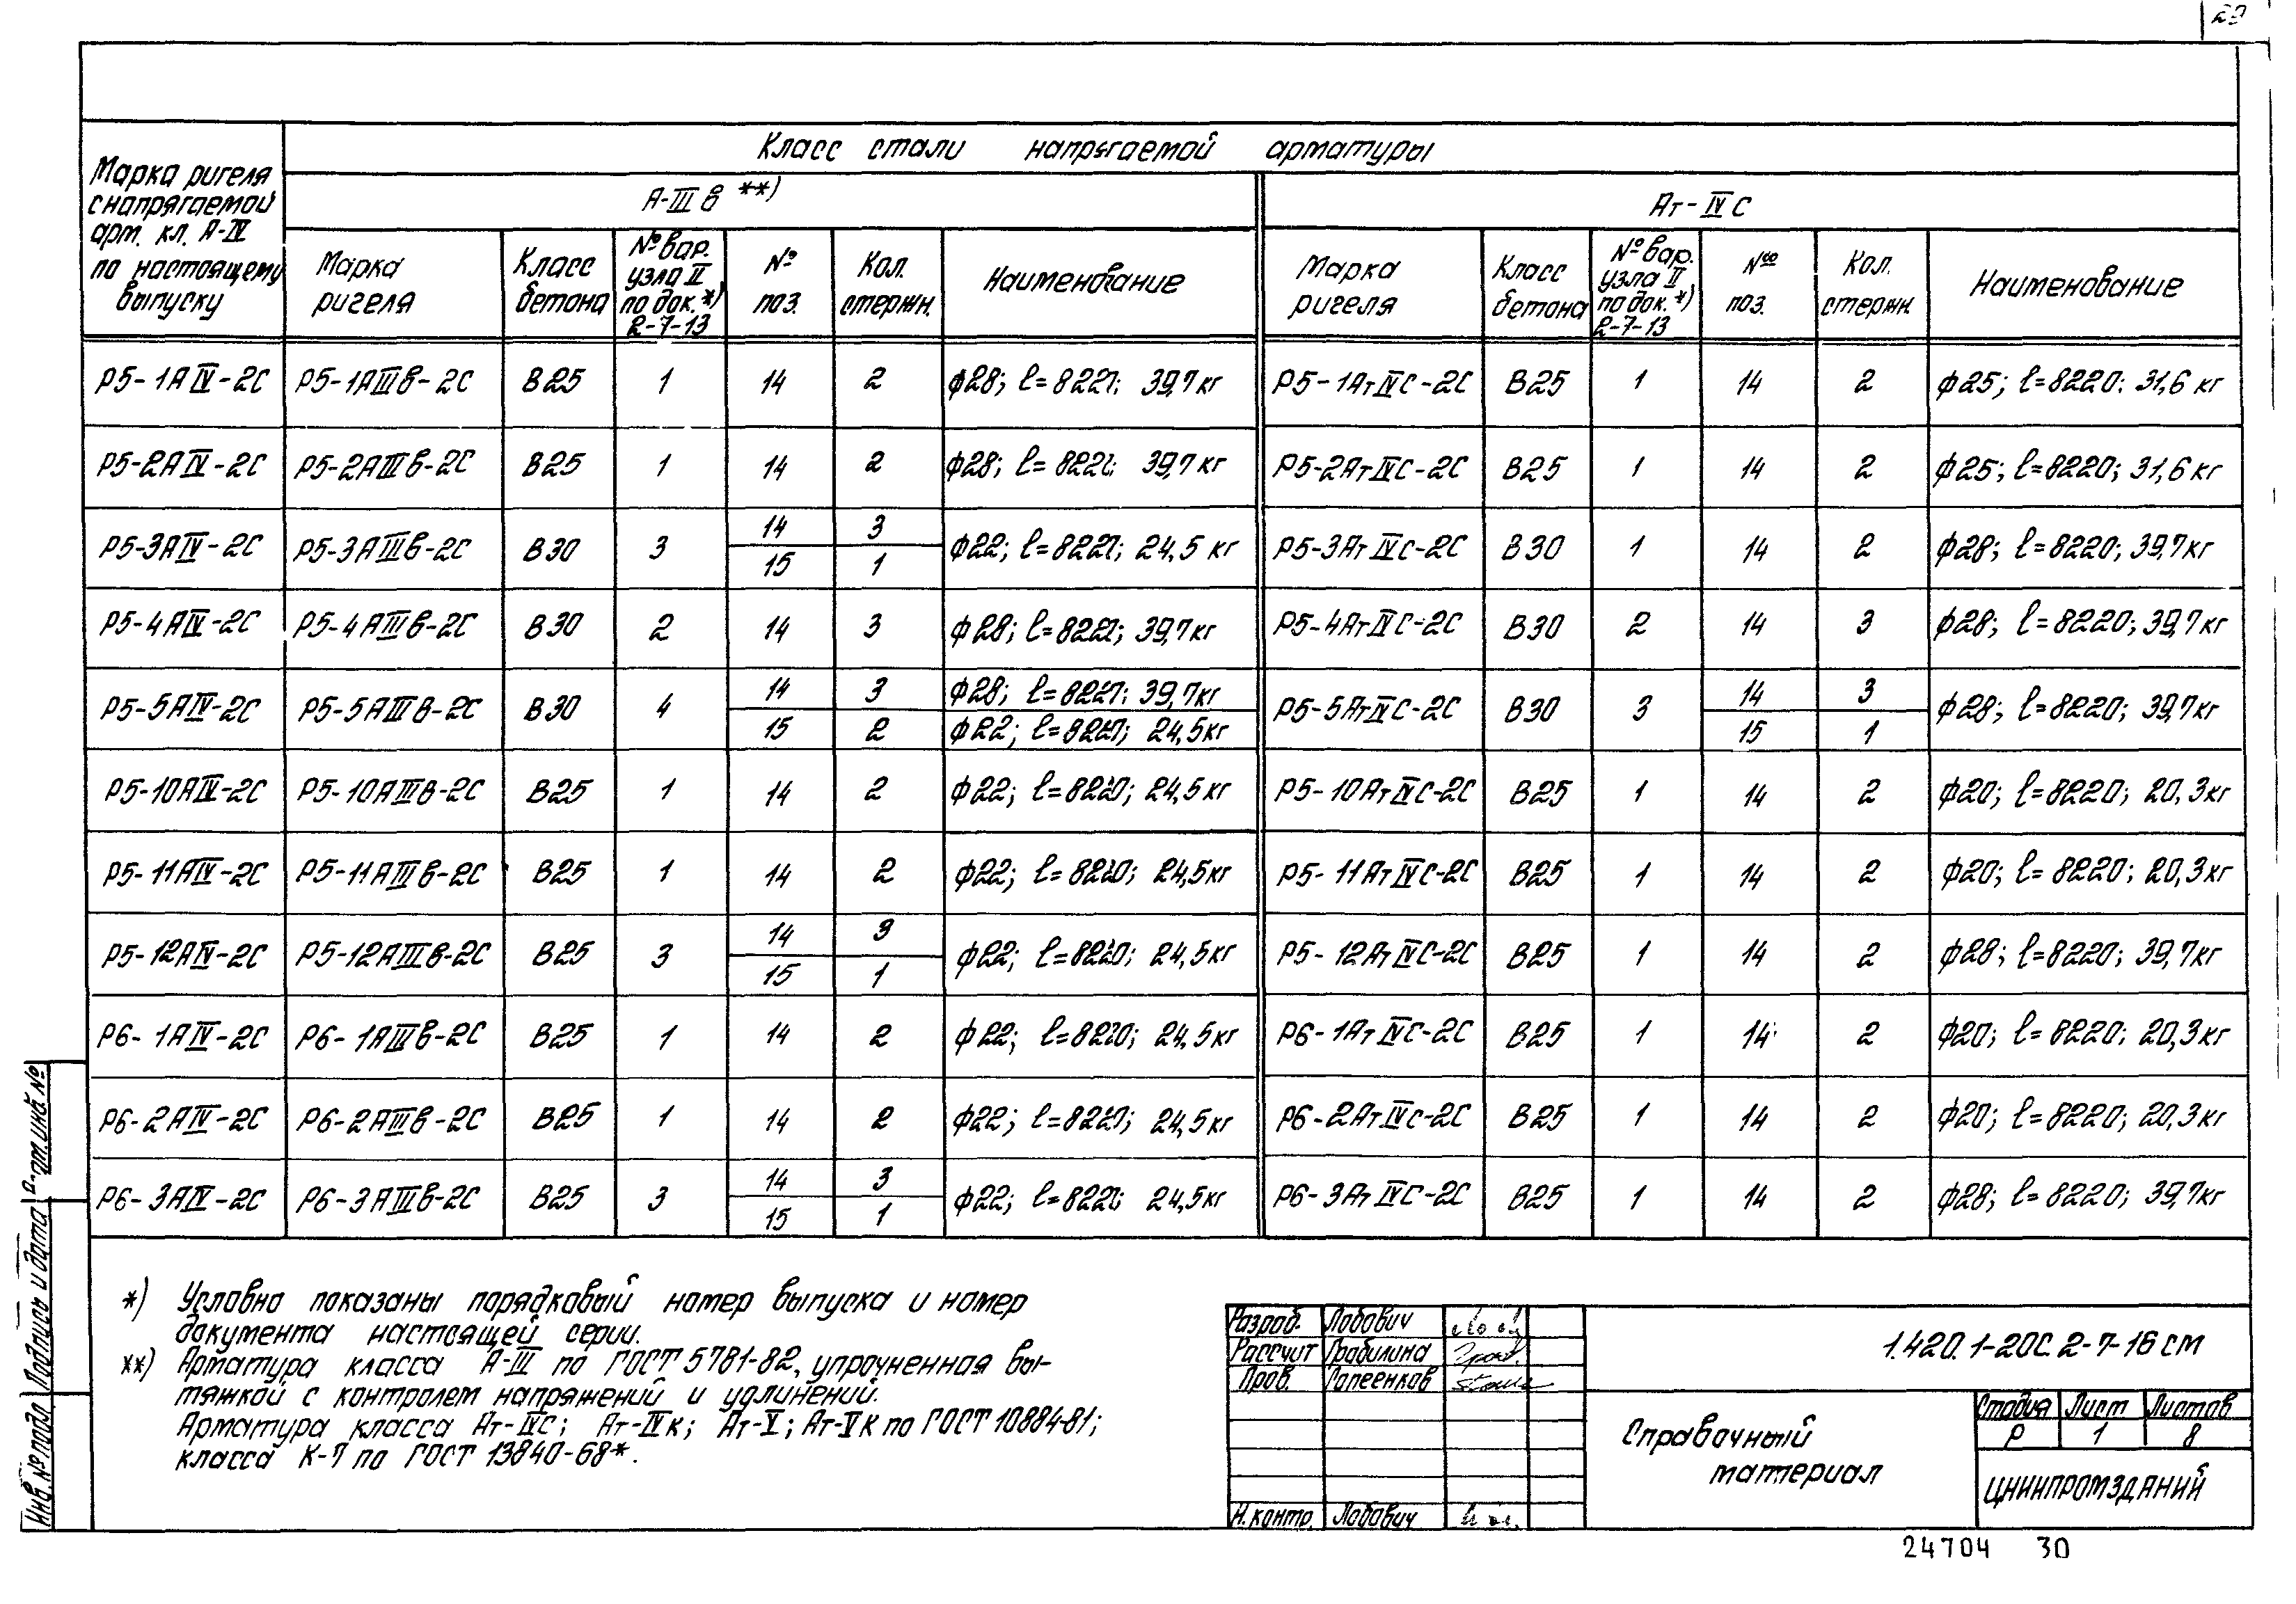 29
Класс стали напрягаемой арматуры
Марка ригеля с напрягаемой арм. кл. А-IV по настоящему выпуску
А-III в **)
Ат-IV С
Марка ригеля | Класс бетона | № вар. узла II по док. *) 2-7-13 | № поз. | Кол. стержн. | Наименование | Марка ригеля | Класс бетона | № вар. узла II по док. *) 2-7-13 | №№ поз. | Кол. стержн. | Наименование
Р5-1АIV-2С | Р5-1АIIIв-2С | В25 | 1 | 14 | 2 | ф28; ℓ=8220; 39,7кг | Р5-1АтIVС-2С | В25 | 1 | 14 | 2 | ф25; ℓ=8220; 31,6 кг
Р5-2АIV-2С | Р5-2АIIIв-2С | В25 | 1 | 14 | 2 | ф28; ℓ=8220; 39,7кг | Р5-2АтIVС-2С | В25 | 1 | 14 | 2 | ф25; ℓ=8220; 31,6 кг
Р5-3АIV-2С | Р5-3АIIIв-2С | В30 | 3 | 14 | 3 | ф22; ℓ=8220; 24,5 кг | Р5-3АтIVС-2С | В30 | 1 | 14 | 2 | ф28; ℓ=8220; 39,7кг
15 | 1
Р5-4АIV-2С | Р5-4АIIIв-2С | В30 | 2 | 14 | 3 | ф28; ℓ=8220; 39,7кг | Р5-4АтIVС-2С | В30 | 2 | 14 | 3 | ф28; ℓ=8220; 39,7кг
Р5-5АIV-2С | Р5-5АIIIв-2С | В30 | 4 | 14 | 3 | ф28; ℓ=8220; 39,7кг | Р5-5АтIVС-2С | В30 | 3 | 14 | 3 | ф28; ℓ=8220; 39,7кг
15 | 2 | ф22; ℓ=8220; 24,5кг | 15 | 1
Р5-10АIV-2С | Р5-10АIIIв-2С | В25 | 1 | 14 | 2 | ф22; ℓ=8220; 24,5кг | Р5-10АтIVС-2С | В25 | 1 | 14 | 2 | ф20; ℓ=8220; 20,3кг
Р5-11АIV-2С | Р5-11АIIIв-2С | В25 | 1 | 14 | 2 | ф22; ℓ=8220; 24,5кг | Р5-11АтIVС-2С | В25 | 1 | 14 | 2 | ф20; ℓ=8220; 20,3кг
Р5-12АIV-2С | Р5-12АIIIв-2С | В25 | 3 | 14 | 3 | ф22; ℓ=8220; 24,5кг | Р5-12АтIVС-2С | В25 | 1 | 14 | 2 | ф28; ℓ=8220; 39,7кг
15 | 1
Р6-1АIV-2С | Р6-1АIIIв-2С | В25 | 1 | 14 | 2 | ф22; ℓ=8220; 24,5кг | Р6-1АтIVС-2С | В25 | 1 | 14 | 2 | ф20; ℓ=8220; 20,3кг
Р6-2АIV-2С | Р6-2АIIIв-2С | В25 | 1 | 14 | 2 | ф22; ℓ=8220; 24,5кг | Р6-2АтIVС-2С | В25 | 1 | 14 | 2 | ф20; ℓ=8220; 20,3кг
Р6-3АIV-2С | Р6-3АIIIв-2С | В25 | 3 | 14 | 3 | ф22; ℓ=8220; 24,5кг | Р6-3АтIVС-2С | В25 | 1 | 14 | 2 | ф28; ℓ=8220; 39,7кг
15 | 1
*) Условно показаны порядковый номер выпуска и номер
документа настоящей серии.
**) Арматура класса А-III по ГОСТ 5781-82, упрочненная вы-
тяжкой с контролем напряжений и удлинений.
Арматура класса Ат-IVС; Ат-IVК; Ат-V; Ат-VК по ГОСТ 10884-81;
класса К-7 по ГОСТ 13840-68*.
Разраб. Лобович
Рассчит Грабилина
Пров. Гапеенков
Н.контр. Лобович
1.420.1-20С.2-7-16 СМ
Справочный
материал
Стадия Лист Листов
Р 1 8
ЦНИИПРОМЗДАНИЙ
Инв.№подл. Подпись и дата инв.№
24704 30